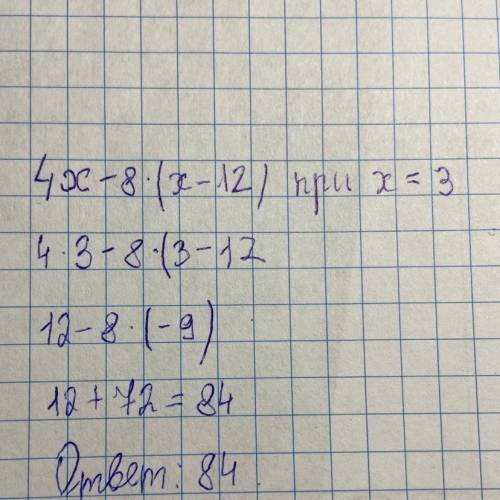 4x - 8·(x - 12) при x = 3
4·3 - 8·(3 - 12
12 - 8·(-9)
12 + 72 = 84
Ответ: 84.